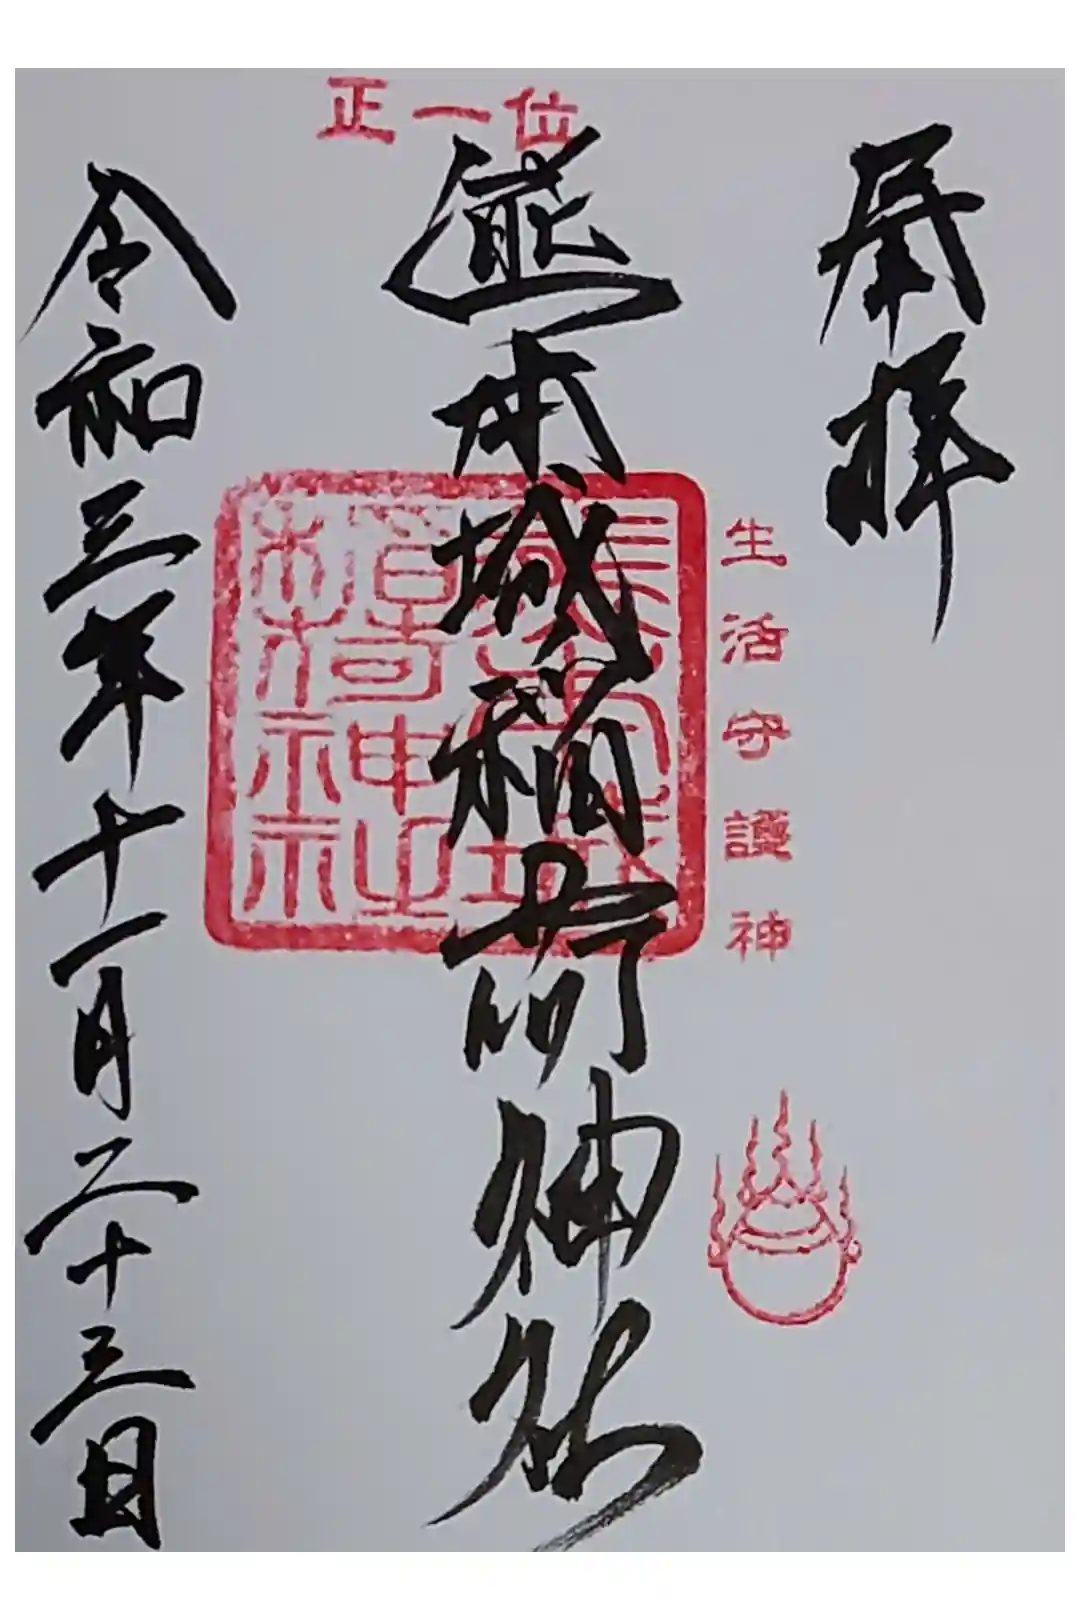 正一位
奉拝
生活守護神
熊本城稲荷神社
令和三年十一月二十三日